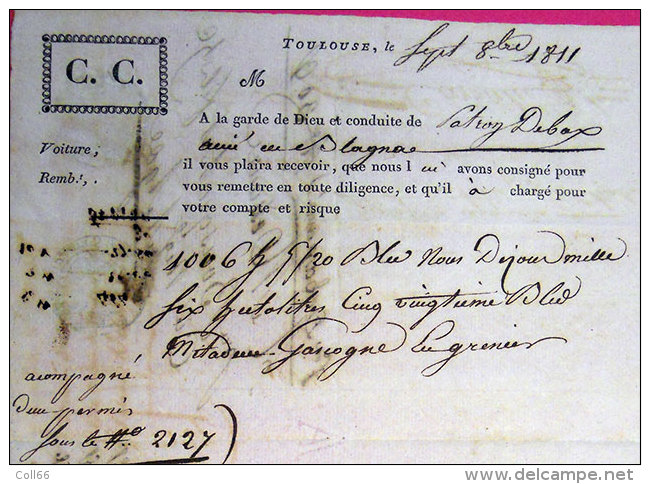 TOULOUSE, le Sept 8bre 1811
C. C.
M
A la garde de Dieu et conduite de Patron Debax
Voiture;
il vous plaira recevoir, que nous l ui avons consigné pour
Rembt.,.
vous remettre en toute diligence, et qu'il à chargé pour
votre compte et risque
1006 h 5/20 Bled Nous Dijour mille
six hectolitres Cinq vingtieme Bled
Mitadin Gascogne En grenier
acompagné
d'un permis
sous le No 2127
Coll66
delcampe.net